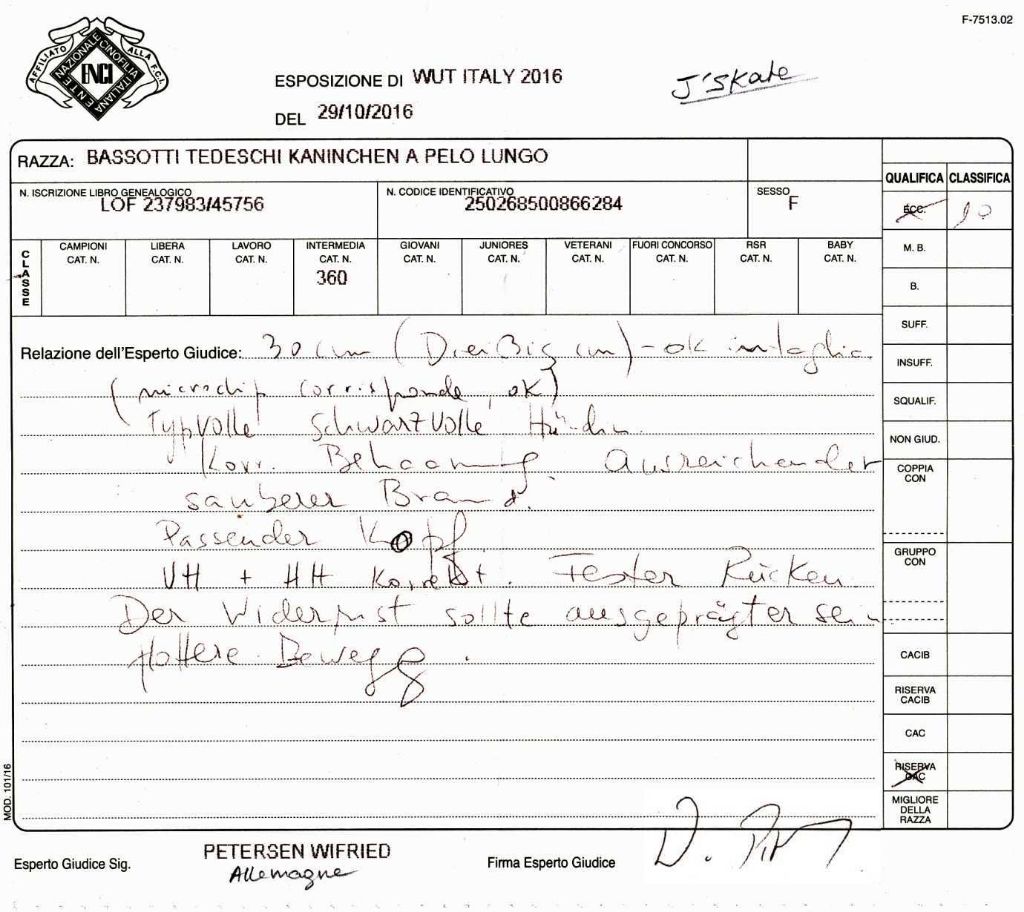 F-7513.02
AFFILIATO ALLA F.C.I.
ENTE NAZIONALE CINOFILIA ITALIANA
ENCI
ESPOSIZIONE DI WUT ITALY 2016
J'Skate
DEL 29/10/2016
RAZZA: BASSOTTI TEDESCHI KANINCHEN A PELO LUNGO
QUALIFICA CLASSIFICA
N. ISCRIZIONE LIBRO GENEALOGICO
LOF 237983/45756
N. CODICE IDENTIFICATIVO
250268500866284
SESSO
F
ECC. 1º
CLASSE
CAMPIONI CAT. N.
LIBERA CAT. N.
LAVORO CAT. N.
INTERMEDIA CAT. N.
360
GIOVANI CAT. N.
JUNIORES CAT. N.
VETERANI CAT. N.
FUORI CONCORSO CAT. N.
RSR CAT. N.
BABY CAT. N.
M. B.
B.
SUFF.
INSUFF.
SQUALIF.
NON GIUD.
COPPIA CON
GRUPPO CON
CACIB
RISERVA CACIB
CAC
RISERVA CAC
MIGLIORE DELLA RAZZA
Relazione dell'Esperto Giudice: 30 cm (Dreißig cm) - ok in taglia
(microchip corrisponde, ok)
Typvolle Schwarzvolle Hündin
Korr. Behaarung Ausreichender
sauberer Brand.
Passender Kopf
VH + HH Korrekt. Fester Rücken
Der Widerrist sollte ausgeprägter sein
flottere Bewegg.
MOD. 101/16
Esperto Giudice Sig. PETERSEN WIFRIED
Allemagne
Firma Esperto Giudice